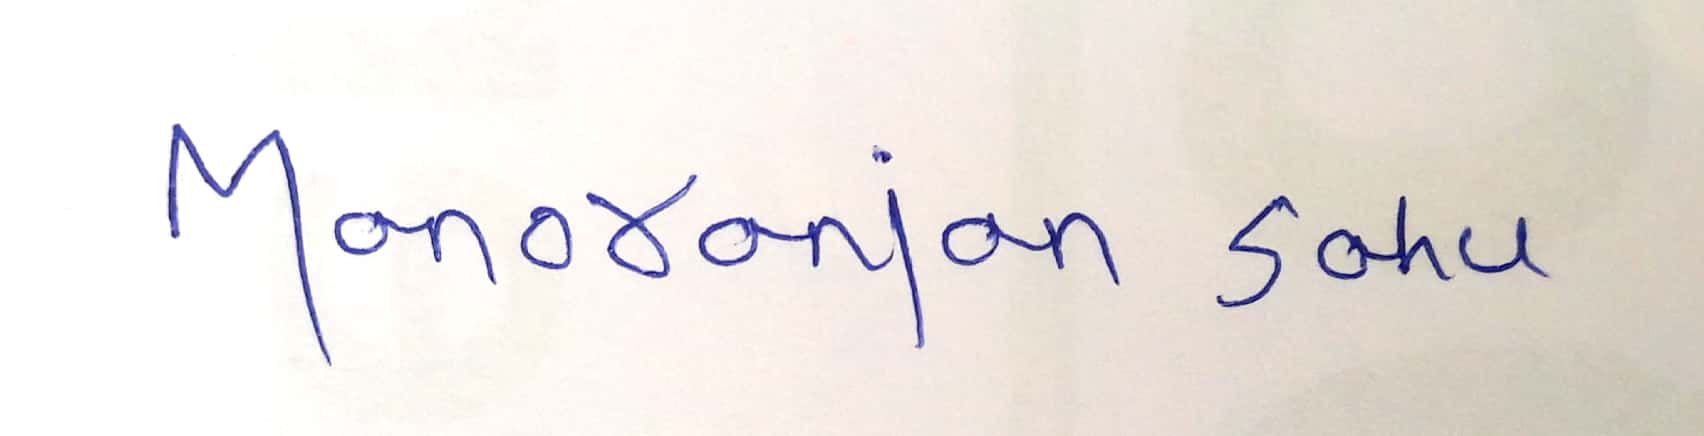 Manoranjan Sahu